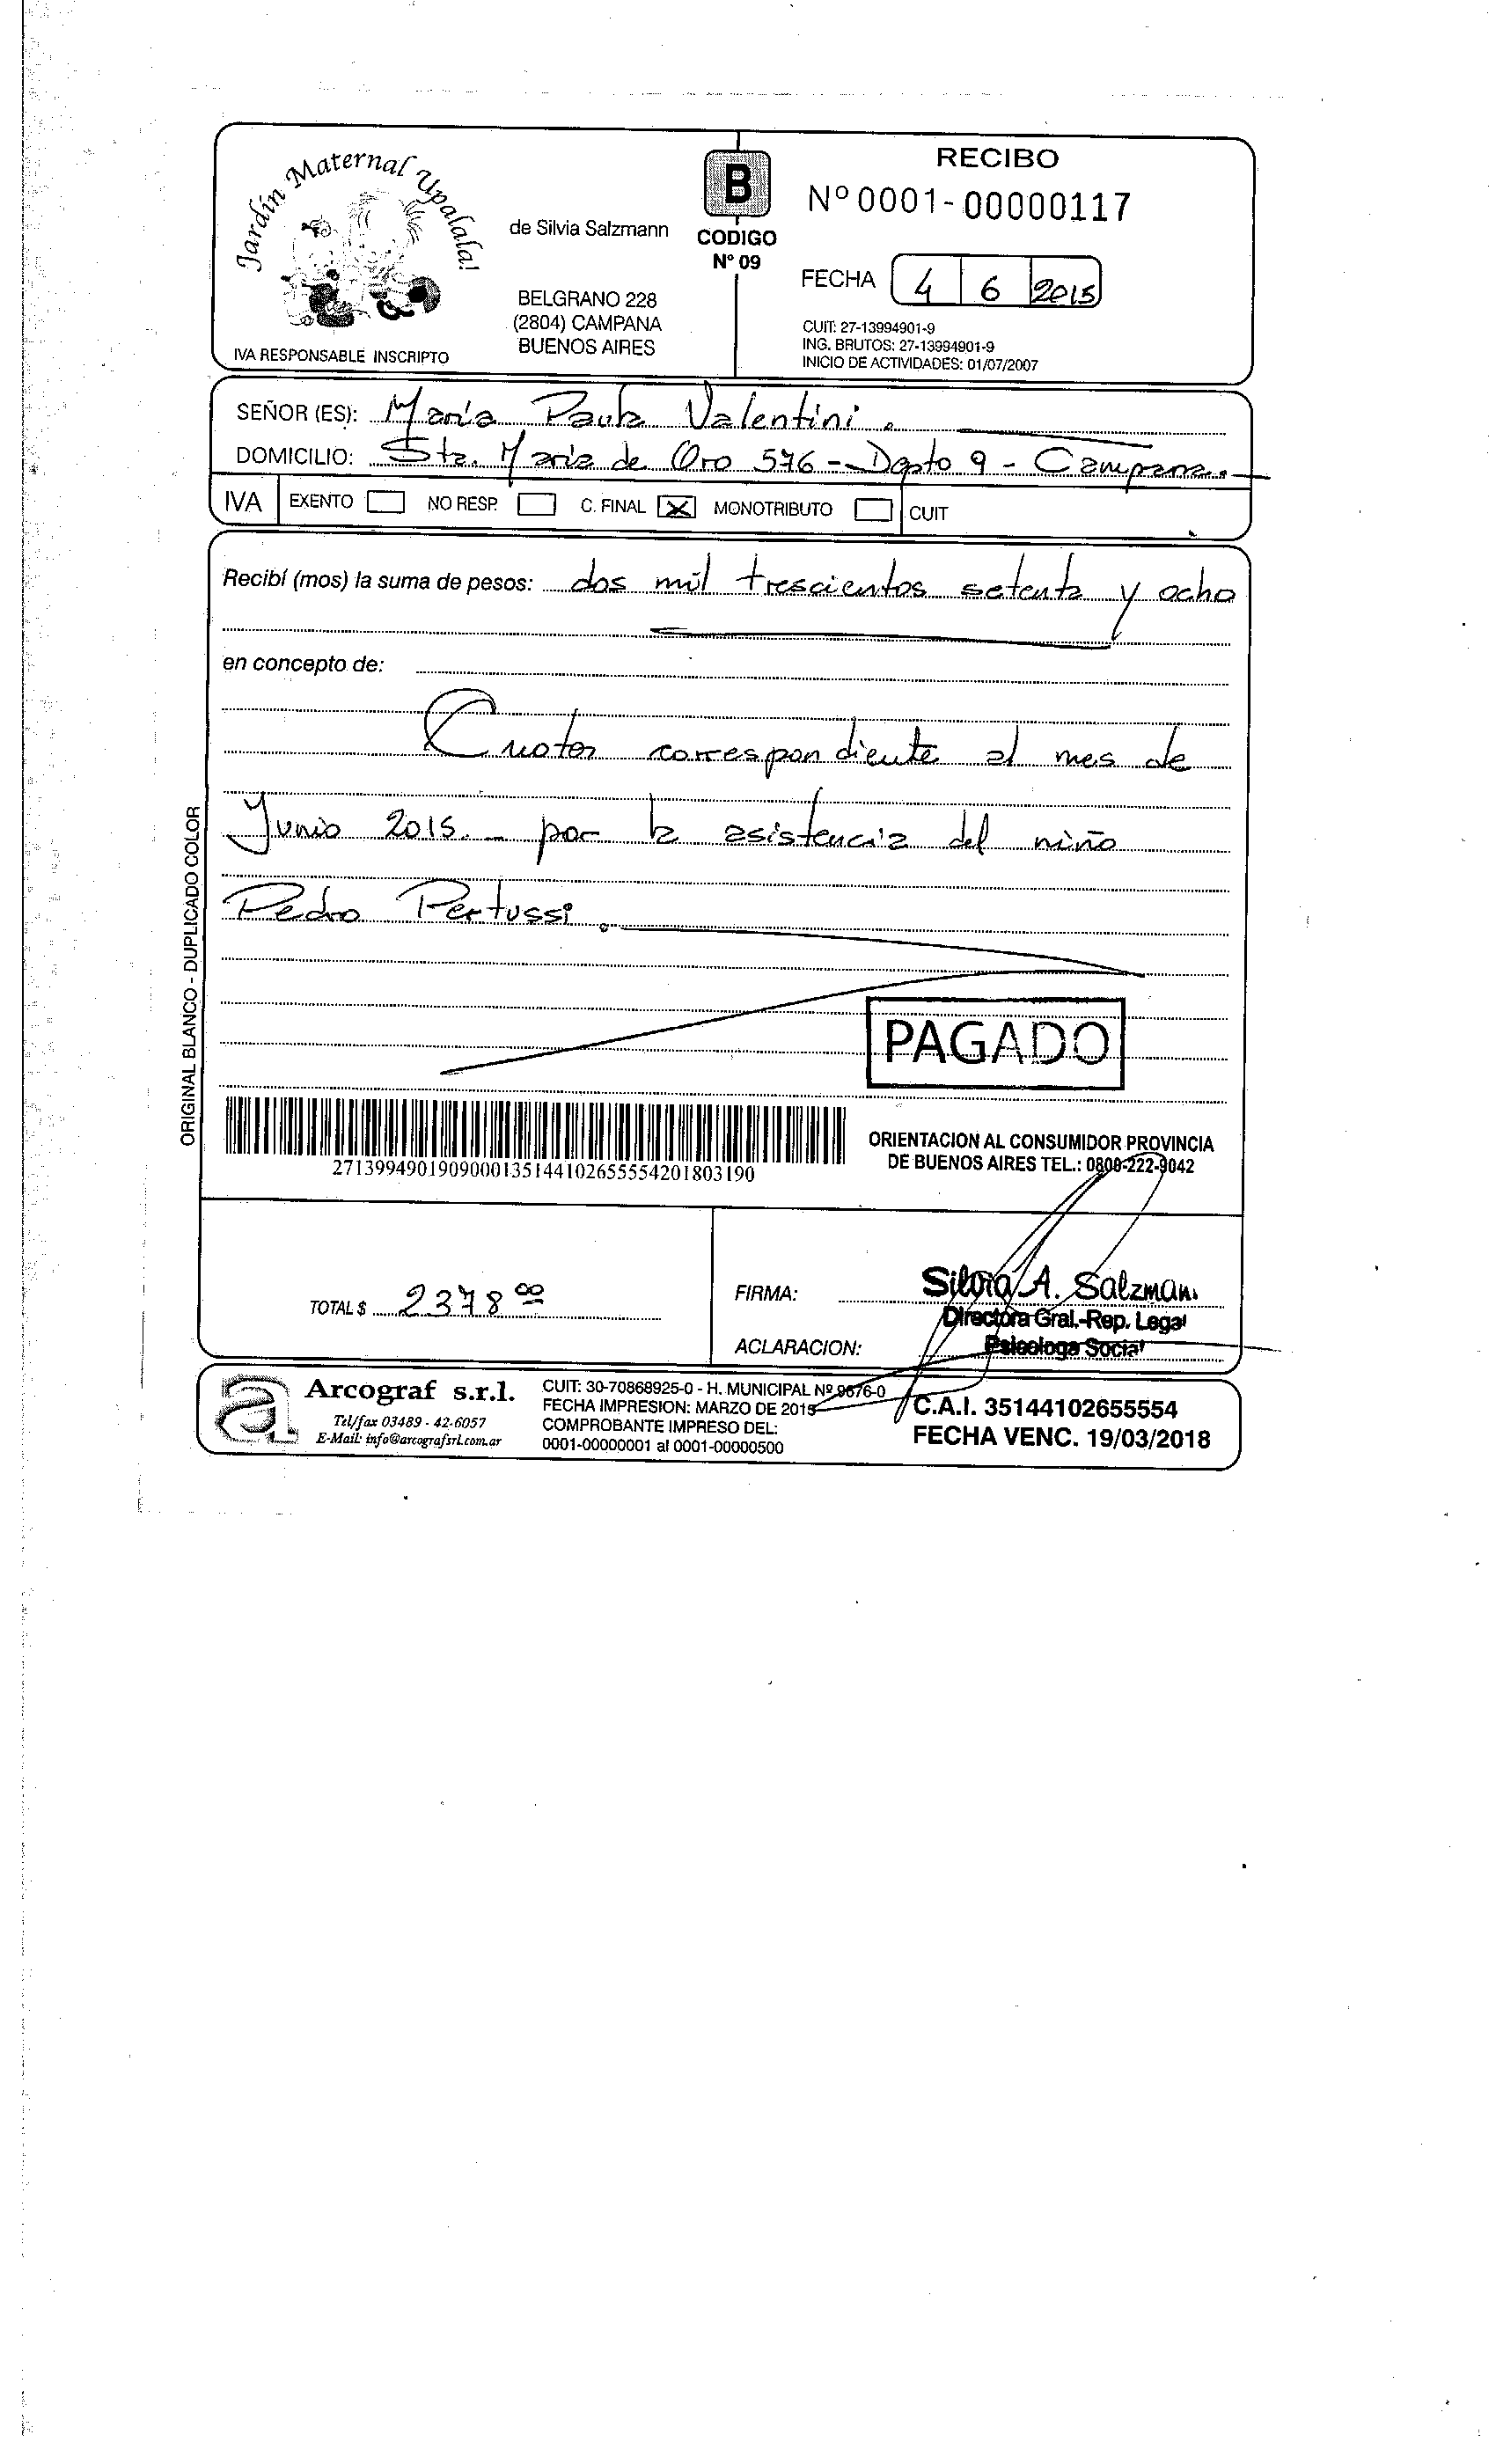 Jardín Maternal Upalala!
de Silvia Salzmann
BELGRANO 228
(2804) CAMPANA
BUENOS AIRES
IVA RESPONSABLE INSCRIPTO
B
CODIGO
Nº 09
RECIBO
Nº 0001-00000117
FECHA 4 6 2015
CUIT: 27-13994901-9
ING. BRUTOS: 27-13994901-9
INICIO DE ACTIVIDADES: 01/07/2007
SEÑOR (ES): María Paula Valentini.
DOMICILIO: Sta. María de Oro 576 - Dpto 9 - Campana.
IVA EXENTO NO RESP. C. FINAL X MONOTRIBUTO CUIT
Recibí (mos) la suma de pesos: dos mil trescientos setenta y ocho
en concepto de:
Cuota correspondiente al mes de
Junio 2015.- por la asistencia del niño
Pedro Pertussi.
PAGADO
ORIGINAL BLANCO - DUPLICADO COLOR
2713994901909000135144102655554201803190
ORIENTACION AL CONSUMIDOR PROVINCIA
DE BUENOS AIRES TEL.: 0800-222-9042
TOTAL $ 2378 00
FIRMA: Silvia A. Salzman.
Directora Gral.-Rep. Legal
ACLARACION: Psicologa Social
a
Arcograf s.r.l.
Tel/fax 03489 - 42-6057
E-Mail: info@arcografsrl.com.ar
CUIT: 30-70868925-0 - H. MUNICIPAL Nº 9676-0
FECHA IMPRESION: MARZO DE 2015
COMPROBANTE IMPRESO DEL:
0001-00000001 al 0001-00000500
C.A.I. 35144102655554
FECHA VENC. 19/03/2018